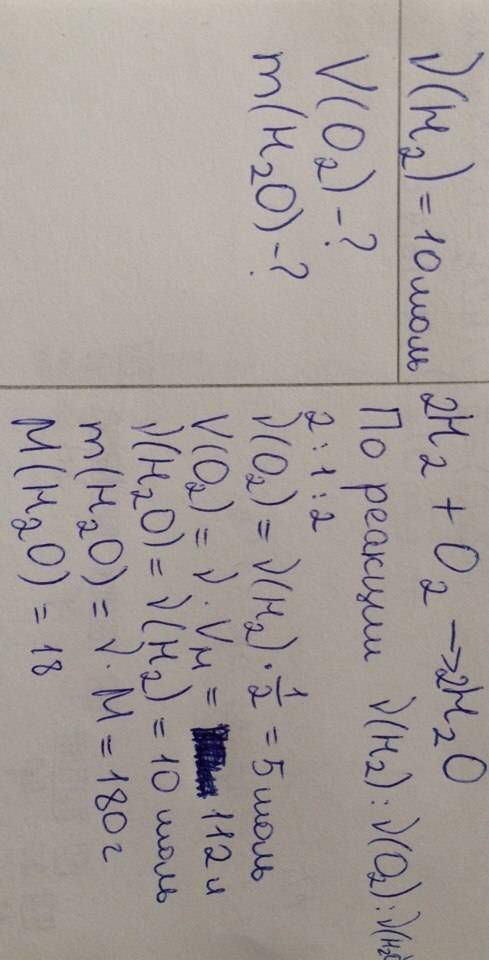 ν(H₂) = 10 моль
V(O₂) - ?
m(H₂O) - ?
2H₂ + O₂ → 2H₂O
По реакции ν(H₂) : ν(O₂) : ν(H₂O)
2 : 1 : 2
ν(O₂) = ν(H₂) · 1/2 = 5 моль
V(O₂) = ν · Vм = 112 л
ν(H₂O) = ν(H₂) = 10 моль
m(H₂O) = ν · M = 180 г
M(H₂O) = 18